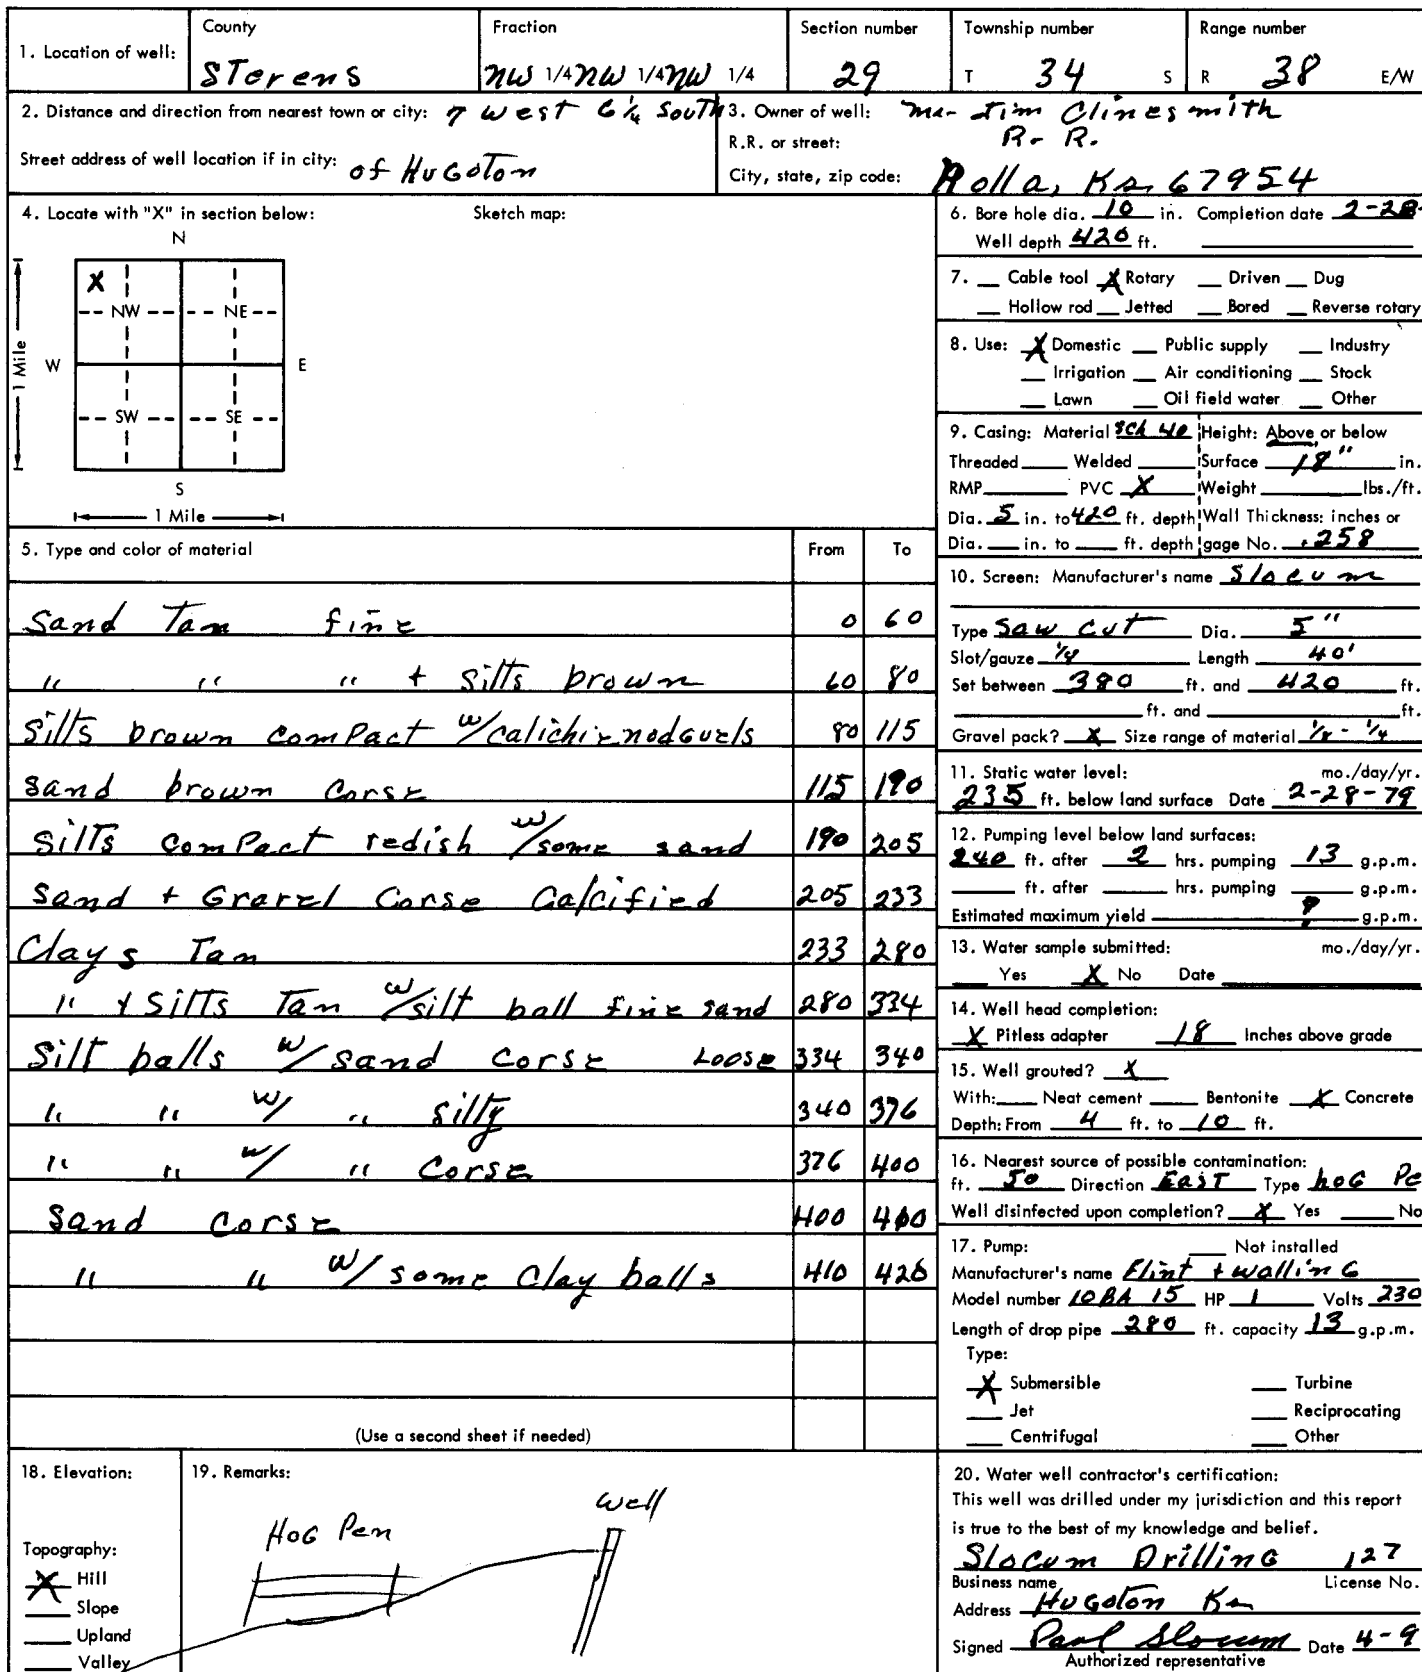 County Fraction Section number Township number Range number
1. Location of well: Sterens NW 1/4 NW 1/4 NW 1/4 29 T 34 S R 38 E/W
2. Distance and direction from nearest town or city: 7 west 6 1/4 South
Street address of well location if in city: of HuGoton
3. Owner of well: Mr Jim Clinesmith
R.R. or street: R. R.
City, state, zip code: Rolla, Ks. 67954
4. Locate with "X" in section below: Sketch map:
N
X
NW NE
W E
1 Mile
SW SE
S
1 Mile
5. Type and color of material From To
Sand Tan fine 0 60
" " " + Silts brown 60 80
Silts brown comPact w/calichie nodGuels 80 115
sand brown Corse 115 190
Silts comPact redish w/some sand 190 205
Sand + Gravel Corse Calcified 205 233
Clays Tan 233 280
" + Silts Tan w/silt ball fine sand 280 334
Silt balls w/ sand corse Loose 334 340
" " w/ " silty 340 376
" " w/ " Corse 376 400
Sand Corse 400 410
" " w/ some Clay balls 410 420
(Use a second sheet if needed)
6. Bore hole dia. 10 in. Completion date 2-28-
Well depth 420 ft.
7. Cable tool X Rotary Driven Dug
Hollow rod Jetted Bored Reverse rotary
8. Use: X Domestic Public supply Industry
Irrigation Air conditioning Stock
Lawn Oil field water Other
9. Casing: Material sch 40 Height: Above or below
Threaded Welded Surface 18" in.
RMP PVC X Weight lbs./ft.
Dia. 5 in. to 420 ft. depth Wall Thickness: inches or
Dia. in. to ft. depth gage No. .258
10. Screen: Manufacturer's name Slocum
Type Saw Cut Dia. 5"
Slot/gauze 1/4 Length 40'
Set between 380 ft. and 420 ft.
ft. and ft.
Gravel pack? X Size range of material 1/8 - 1/4
11. Static water level: mo./day/yr.
235 ft. below land surface Date 2-28-79
12. Pumping level below land surfaces:
240 ft. after 2 hrs. pumping 13 g.p.m.
ft. after hrs. pumping g.p.m.
Estimated maximum yield ? g.p.m.
13. Water sample submitted: mo./day/yr.
Yes X No Date
14. Well head completion:
X Pitless adapter 18 Inches above grade
15. Well grouted? X
With: Neat cement Bentonite X Concrete
Depth: From 4 ft. to 10 ft.
16. Nearest source of possible contamination:
ft. 50 Direction EasT Type hoG Pe
Well disinfected upon completion? X Yes No
17. Pump: Not installed
Manufacturer's name Flint + wallinG
Model number 10BA 15 HP 1 Volts 230
Length of drop pipe 280 ft. capacity 13 g.p.m.
Type:
X Submersible Turbine
Jet Reciprocating
Centrifugal Other
18. Elevation:
Topography:
X Hill
Slope
Upland
Valley
19. Remarks:
HoG Pen well
20. Water well contractor's certification:
This well was drilled under my jurisdiction and this report
is true to the best of my knowledge and belief.
Slocum DrillinG 127
Business name License No.
Address HuGoton Ks
Signed Paul Slocum Date 4-9
Authorized representative